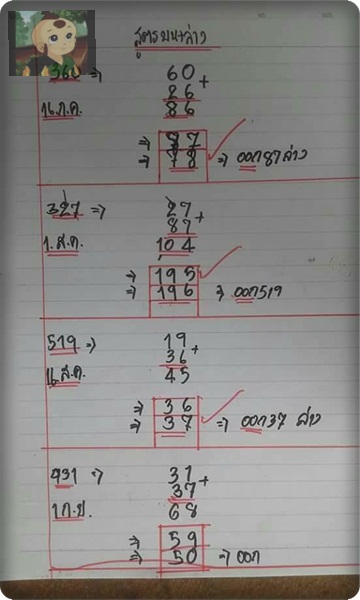 สูตรบน+ล่าง
360 => 60 +
26
16.ก.ค. 86
=> 87
=> 78 => ออก87ล่าง
327 => 27 +
87
1.ส.ค. 104
=> 195
=> 196 => ออก519
519 => 19 +
36
16.ส.ค. 45
=> 36
=> 37 => ออก37 ล่าง
931 => 31 +
37
1 ก.ย. 68
=> 59
=> 50 => ออก